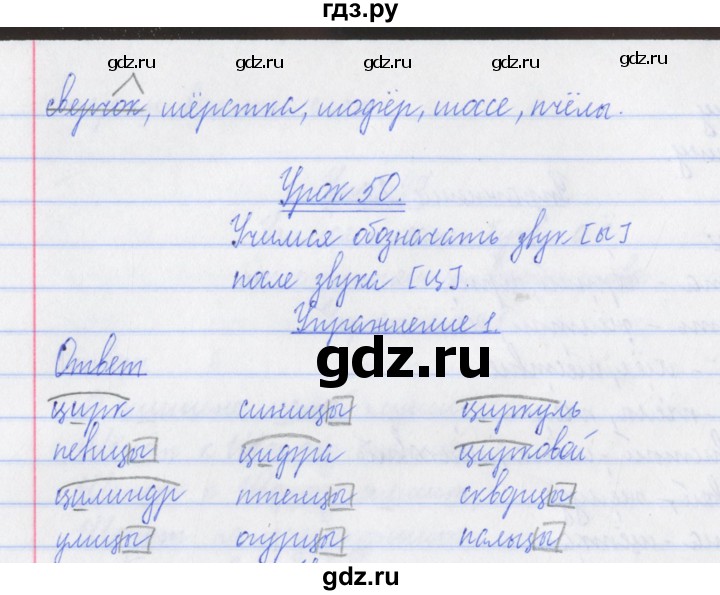 гдз.ру
gdz.ru gdz.ru gdz.ru gdz.ru
сверчок, шёрстка, шофёр, шоссе, пчёлы.
Урок 50.
Учимся обозначать звук [ы]
после звука [ц].
Упражнение 1.
gdz.ru
Ответ
цирк синицы циркуль
певицы цифра цирковой
цилиндр птенцы скворцы
улицы огурцы пальцы
gdz.ru gdz.ru gdz.ru gdz.ru
gdz.ru